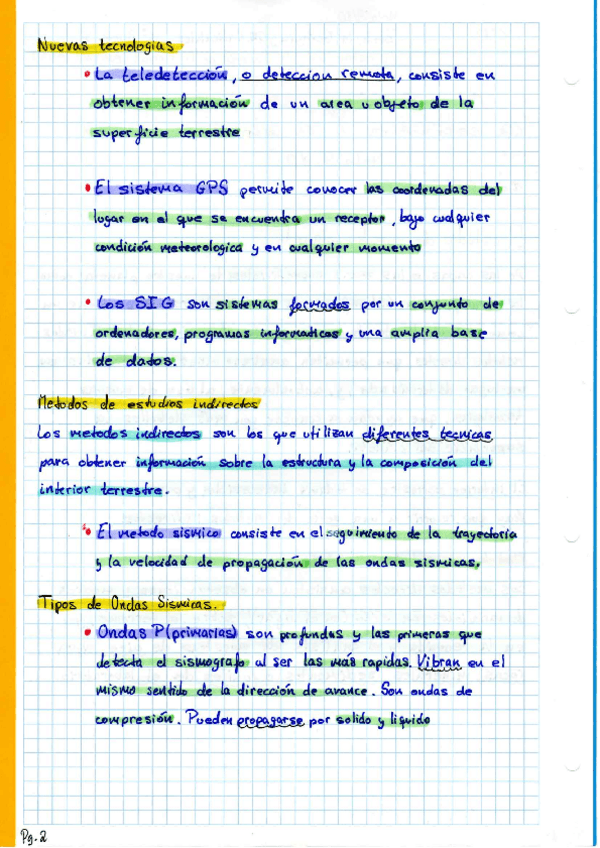 Nuevas tecnologias
• La teledetección, o deteccion remota, consiste en
obtener información de un area u objeto de la
superficie terrestre
• El sistema GPS permite conocer las coordenadas del
lugar en el que se encuentra un receptor, bajo cualquier
condición meteorologica y en cualquier momento
• Los SIG son sistemas formados por un conjunto de
ordenadores, programas informaticos y una amplia base
de datos.
Metodos de estudios indirectos
Los metodos indirectos son los que utilizan diferentes tecnicas
para obtener información sobre la estructura y la composición del
interior terrestre.
• El metodo sismico consiste en el seguimiento de la trayectoria
y la velocidad de propagación de las ondas sismicas.
Tipos de Ondas Sismicas.
• Ondas P(primarias) son profundas y las primeras que
detecta el sismografo al ser las más rapidas. Vibran en el
mismo sentido de la dirección de avance. Son ondas de
compresión. Pueden propagarse por solido y liquido
Pg. 2